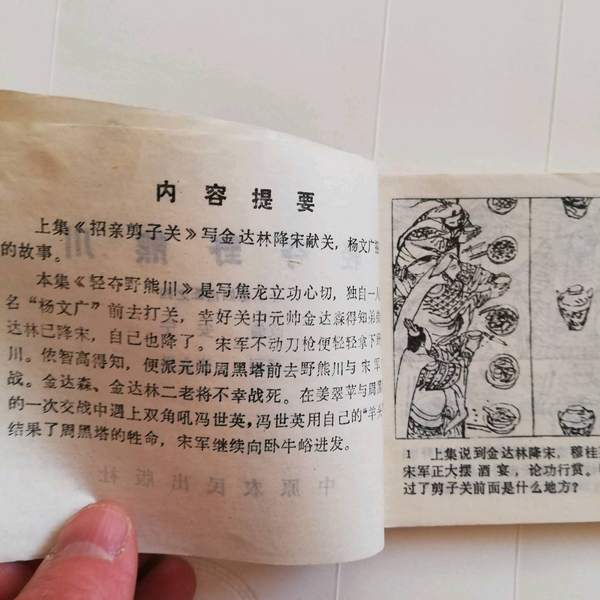 内容提要
上集《招亲剪子关》写金达林降宋献关，杨文广
的故事。
本集《轻夺野熊川》是写焦龙立功心切，独自一人
名“杨文广”前去打关，幸好关中元帅金达森得知弟弟
达林已降宋，自己也降了。宋军不动刀枪便轻轻拿下
川。侬智高得知，便派元帅周黑塔前去野熊川与宋军
战。金达森、金达林二老将不幸战死。在姜翠苹与周黑
的一次交战中遇上双角吼冯世英，冯世英用自己的“羊
结果了周黑塔的牲命，宋军继续向卧牛峪进发。
中原农民出版社
1 上集说到金达林降宋，穆桂
宋军正大摆酒宴，论功行赏。
过了剪子关前面是什么地方？